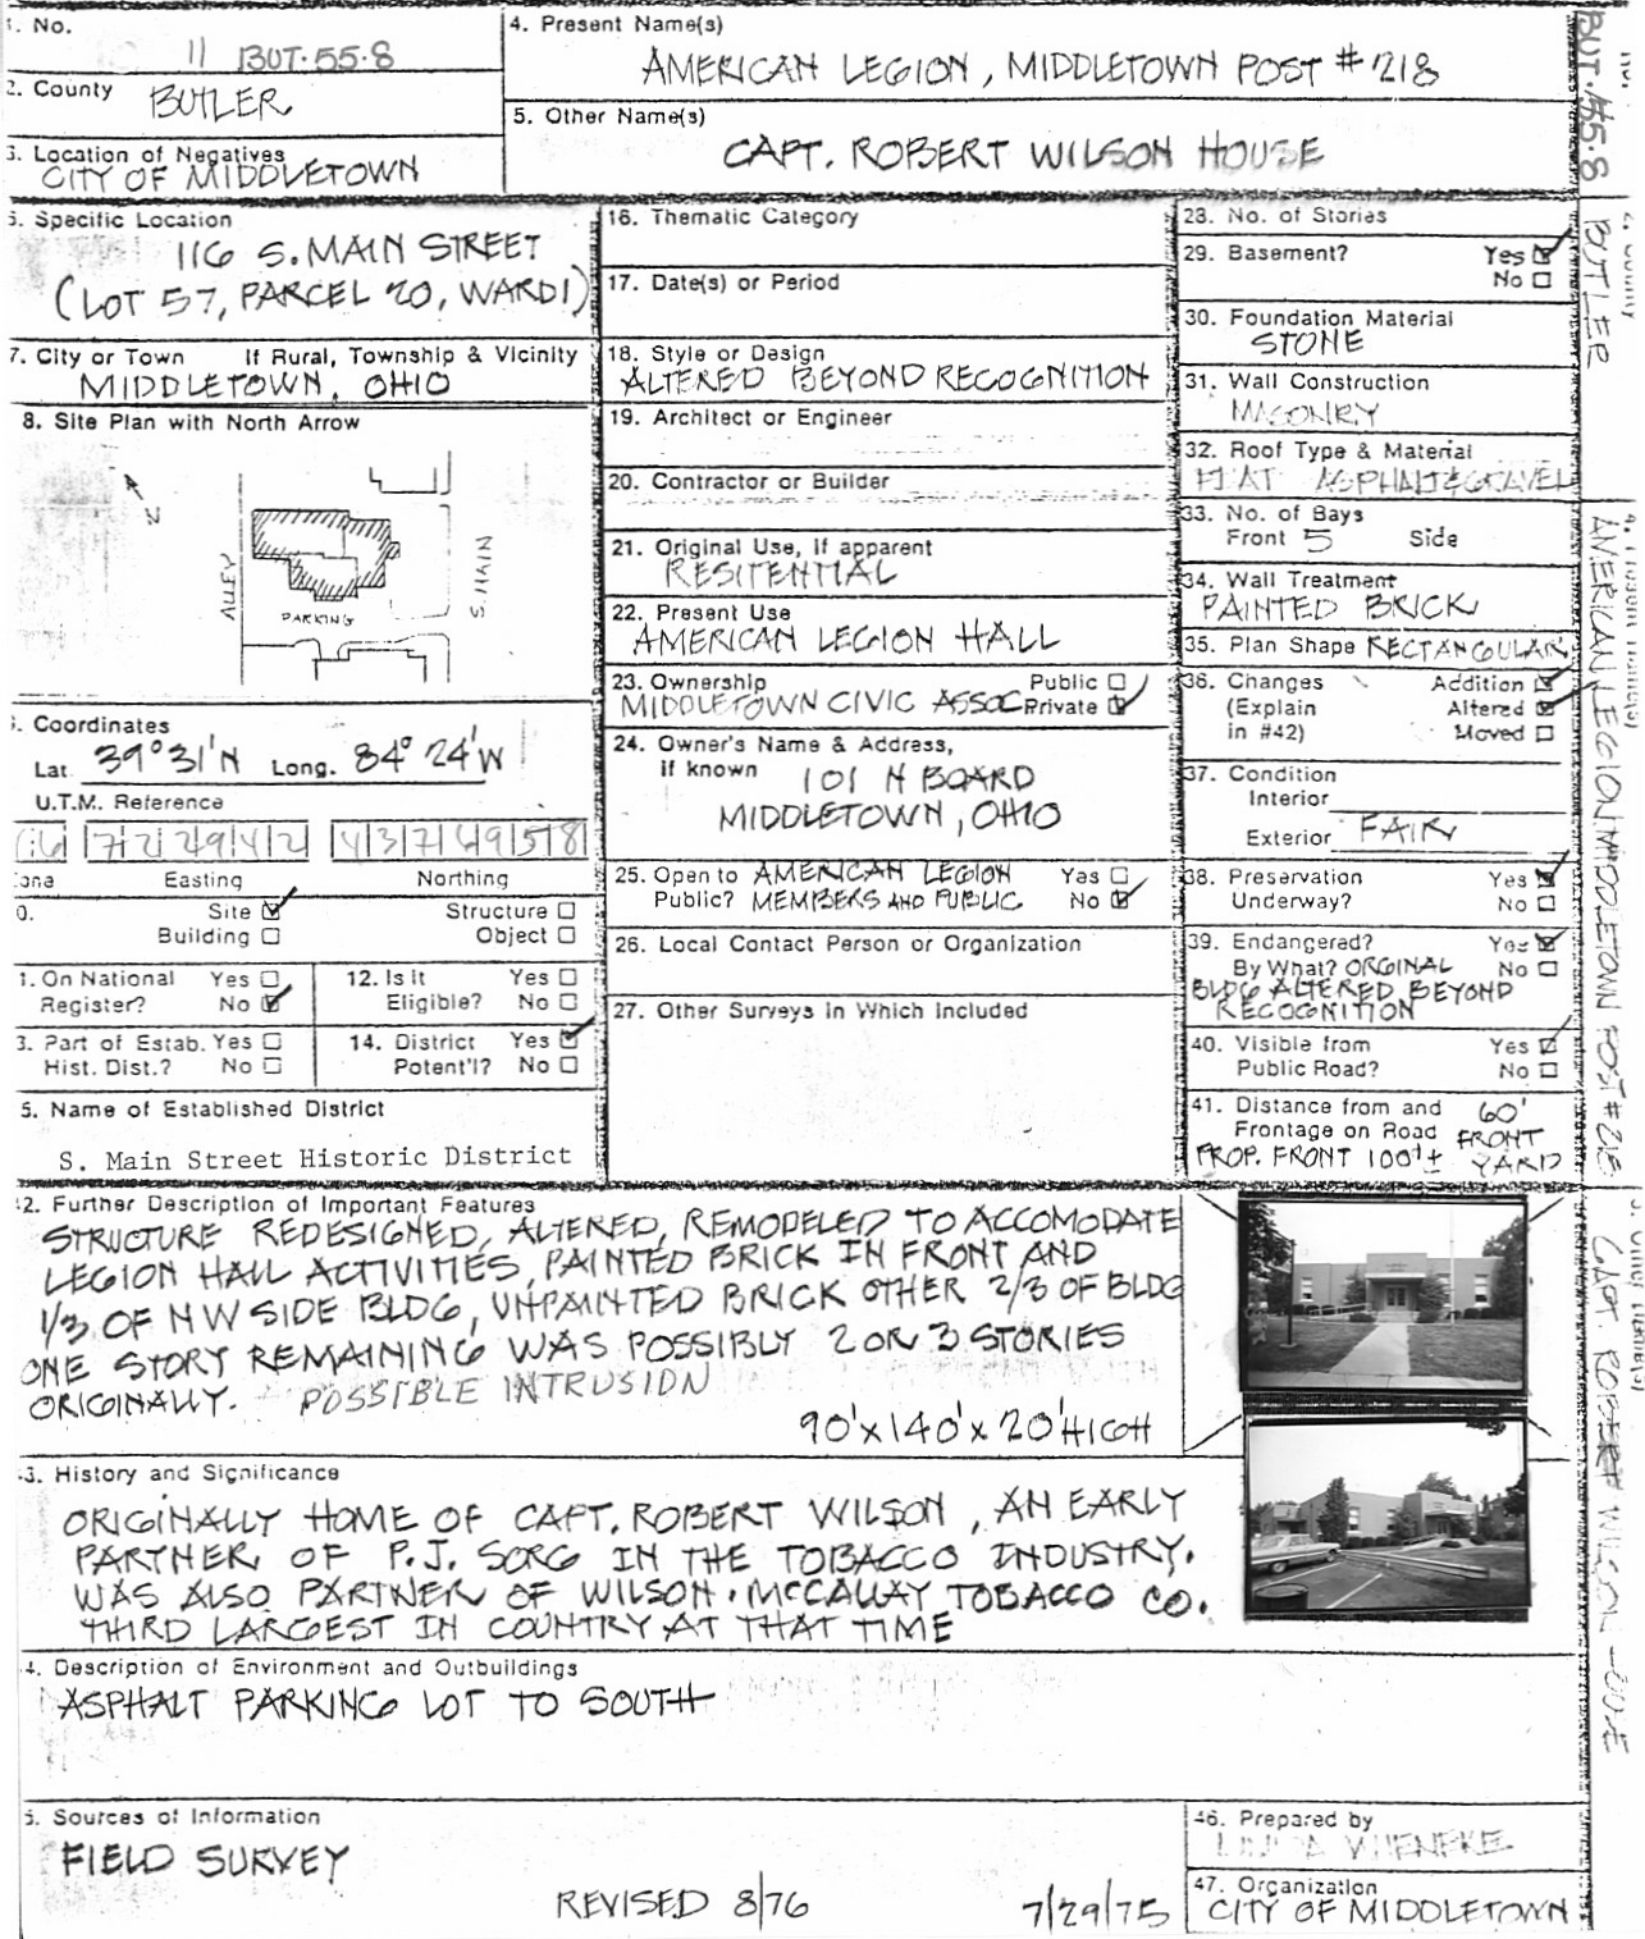 1. No.
11 BUT-55-8
2. County
BUTLER
3. Location of Negatives
CITY OF MIDDLETOWN
4. Present Name(s)
AMERICAN LEGION, MIDDLETOWN POST #218
5. Other Name(s)
CAPT. ROBERT WILSON HOUSE
6. Specific Location
116 S. MAIN STREET
(LOT 57, PARCEL 20, WARD1)
7. City or Town If Rural, Township & Vicinity
MIDDLETOWN, OHIO
8. Site Plan with North Arrow
N
ALLEY
PARKING
S. MAIN
. Coordinates
Lat. 39°31'N Long. 84° 24'W
U.T.M. Reference
Easting Northing
0. Site Structure
Building Object
1. On National Yes
Register? No
12. Is it Yes
Eligible? No
3. Part of Estab. Yes
Hist. Dist.? No
14. District Yes
Potent'l? No
5. Name of Established District
S. Main Street Historic District
16. Thematic Category
17. Date(s) or Period
18. Style or Design
ALTERED BEYOND RECOGNITION
19. Architect or Engineer
20. Contractor or Builder
21. Original Use, if apparent
RESITENTIAL
22. Present Use
AMERICAN LEGION HALL
23. Ownership Public
MIDDLETOWN CIVIC ASSOC Private
24. Owner's Name & Address,
if known 101 N BOARD
MIDDLETOWN, OHIO
25. Open to AMERICAN LEGION Yes
Public? MEMBERS AND PUBLIC No
26. Local Contact Person or Organization
27. Other Surveys in Which Included
28. No. of Stories
29. Basement? Yes
No
30. Foundation Material
STONE
31. Wall Construction
MASONRY
32. Roof Type & Material
FLAT ASPHALT & GRAVEL
33. No. of Bays
Front 5 Side
34. Wall Treatment
PAINTED BRICK
35. Plan Shape RECTANGULAR
36. Changes Addition
(Explain Altered
in #42) Moved
37. Condition
Interior
Exterior FAIR
38. Preservation Yes
Underway? No
39. Endangered? Yes
By What? ORGINAL No
BLDG ALTERED BEYOND
RECOGNITION
40. Visible from Yes
Public Road? No
41. Distance from and 60'
Frontage on Road FRONT
PROP. FRONT 100'± YARD
42. Further Description of Important Features
STRUCTURE REDESIGNED, ALTERED, REMODELED TO ACCOMODATE
LEGION HALL ACTIVITIES, PAINTED BRICK IN FRONT AND
1/3 OF NW SIDE BLDG, UNPAINTED BRICK OTHER 2/3 OF BLDG
ONE STORY REMAINING WAS POSSIBLY 2 OR 3 STORIES
ORIGINALLY. POSSIBLE INTRUSION
90'x140'x20'HIGH
43. History and Significance
ORIGINALLY HOME OF CAPT. ROBERT WILSON, AN EARLY
PARTNER OF P.J. SORG IN THE TOBACCO INDUSTRY.
WAS ALSO PARTNER OF WILSON-MCCALLAY TOBACCO CO.
THIRD LARGEST IN COUNTRY AT THAT TIME
4. Description of Environment and Outbuildings
ASPHALT PARKING LOT TO SOUTH
5. Sources of Information
FIELD SURVEY
REVISED 8/76 7/29/75
46. Prepared by
47. Organization
CITY OF MIDDLETOWN
BUT-55-8
BUTLER
AMERICAN LEGION MIDDLETOWN POST #218
CAPT. ROBERT WILSON